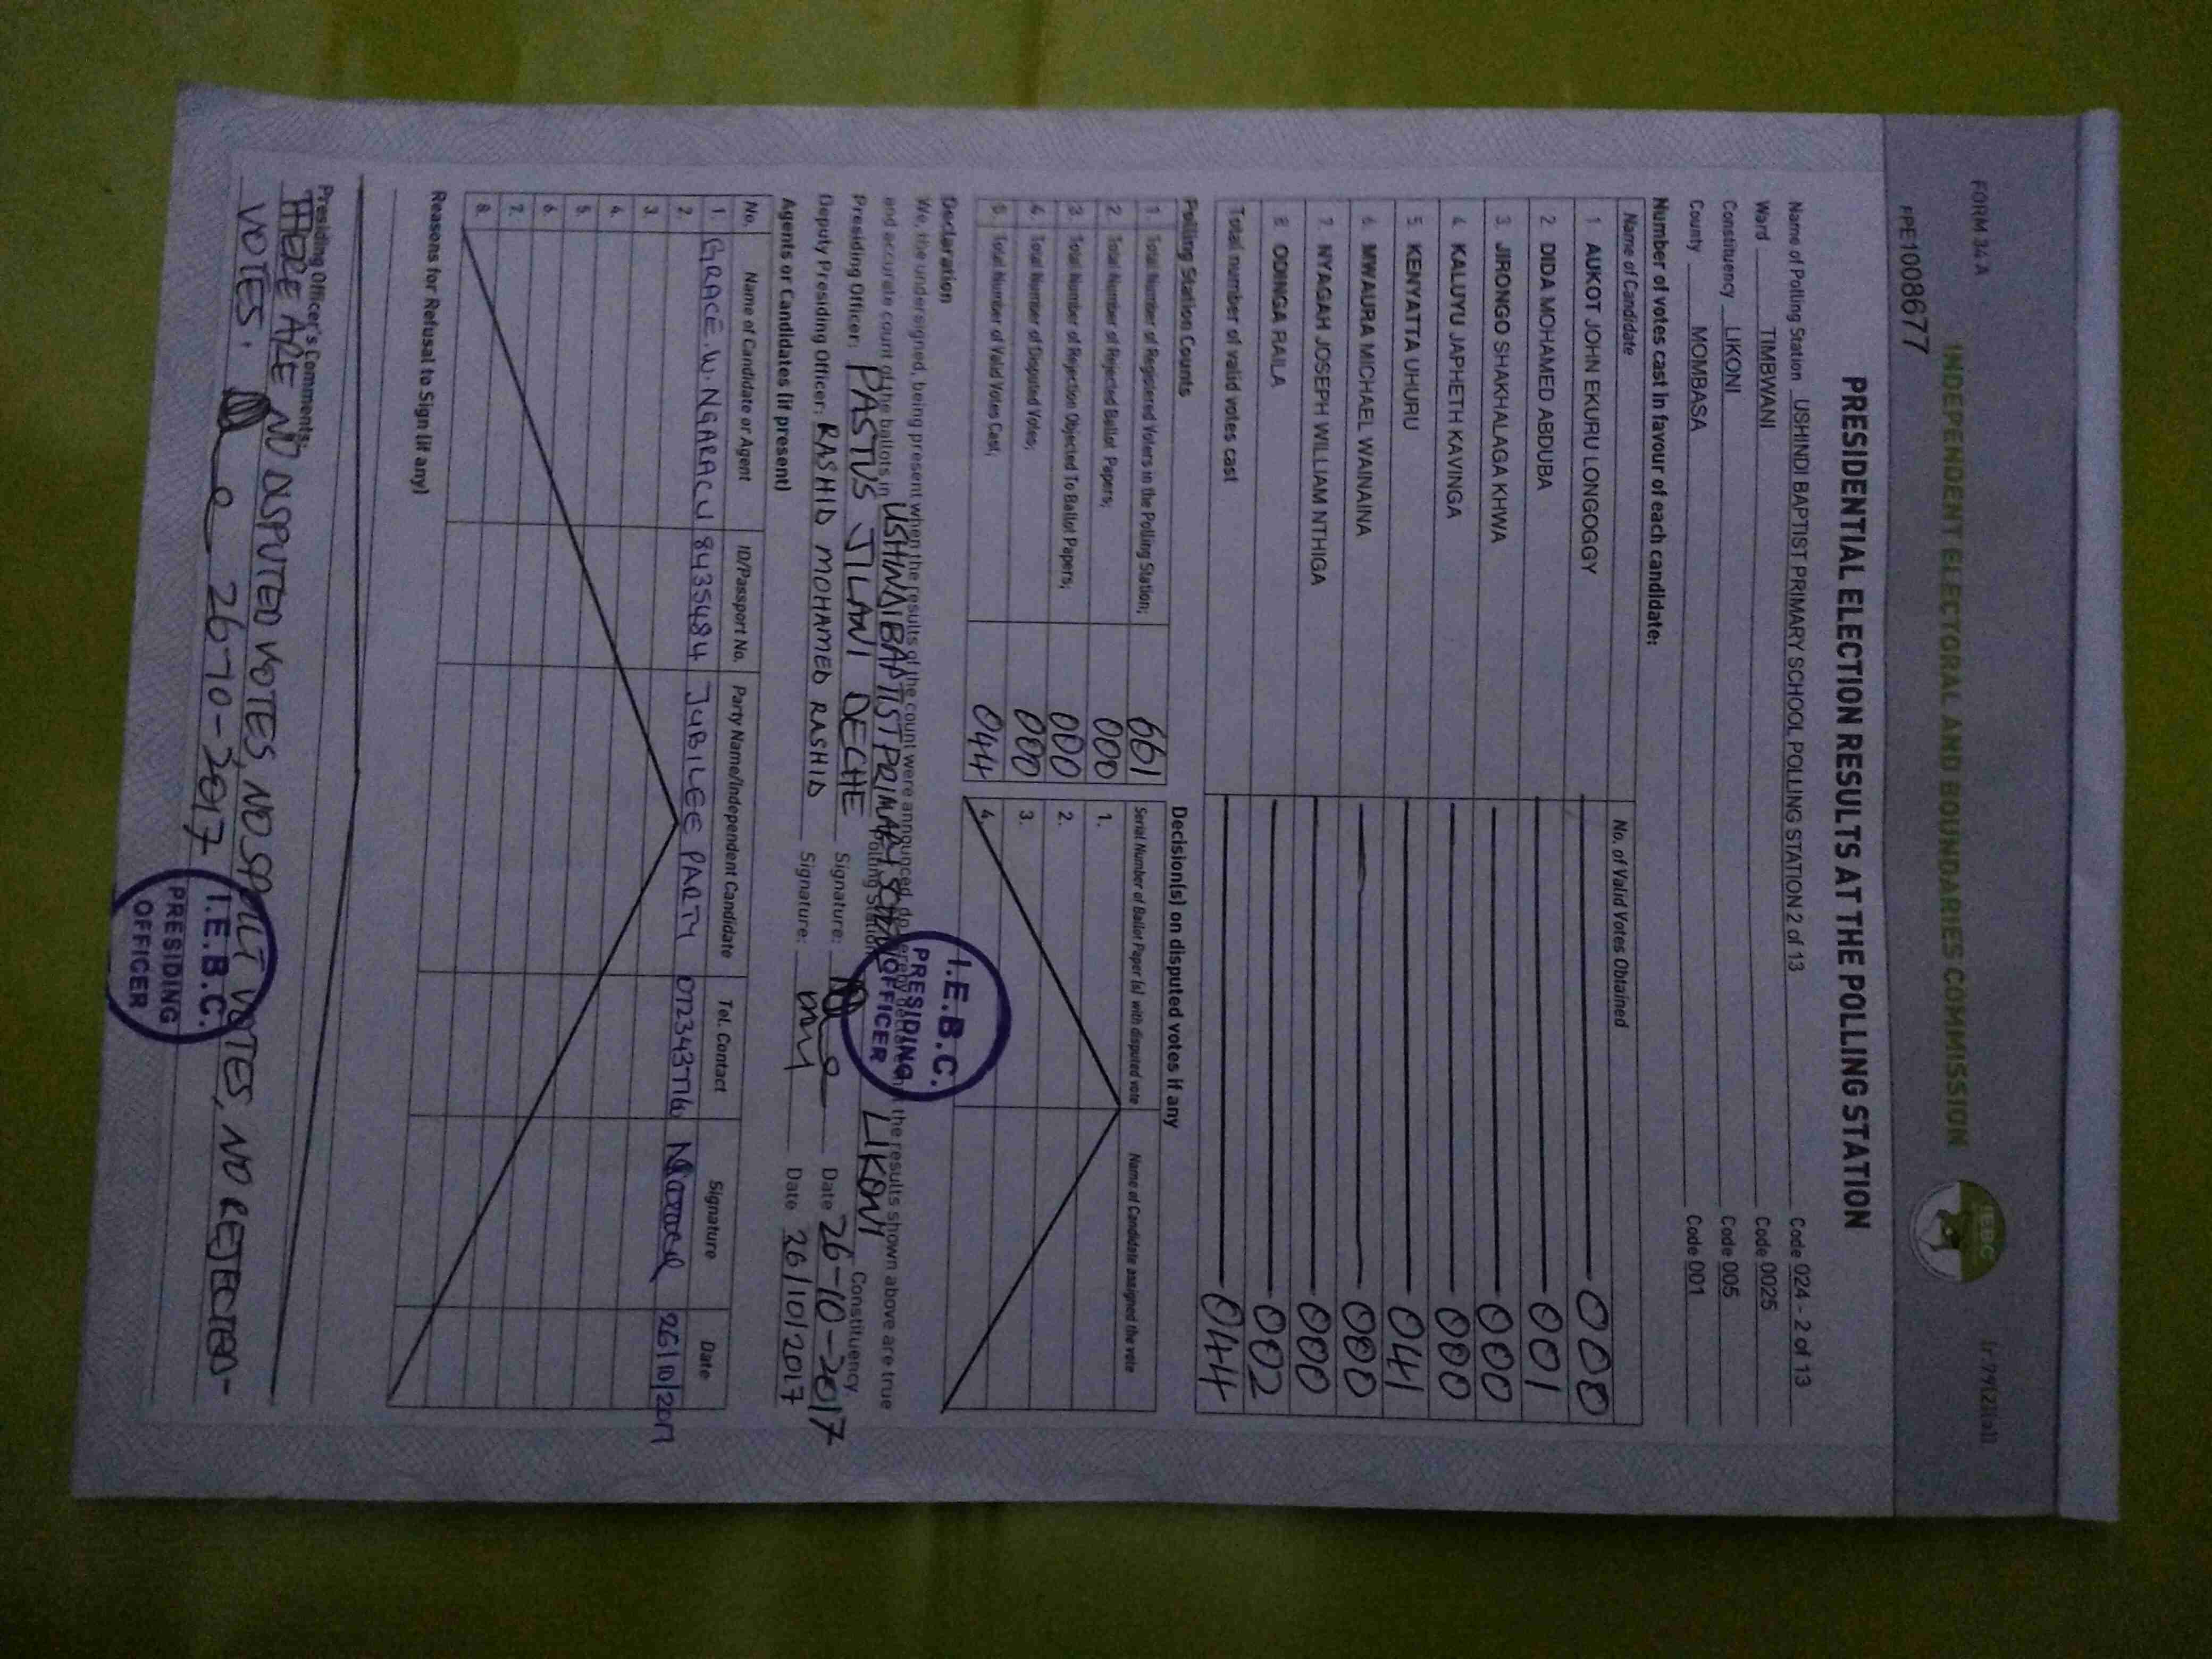 FORM 34 A
INDEPENDENT ELECTORAL AND BOUNDARIES COMMISSION
IEBC
PPE1008677
PRESIDENTIAL ELECTION RESULTS AT THE POLLING STATION
Name of Polling Station USHINDI BAPTIST PRIMARY SCHOOL POLLING STATION 2 of 13 Code 024 - 2 of 13
Ward TIMBWANI Code 0025
Constituency LIKONI Code 005
County MOMBASA Code 001
Number of votes cast in favour of each candidate:
Name of Candidate No. of Valid Votes Obtained
1 AUKOT JOHN EKURU LONGOGGY 000
2 DIDA MOHAMED ABDUBA 001
3 JIRONGO SHAKHALAGA KHWA 000
4 KALUYU JAPHETH KAVINGA 000
5 KENYATTA UHURU 041
6 MWAURA MICHAEL WAINAINA 000
7 NYAGAH JOSEPH WILLIAM NTHIGA 000
8 ODINGA RAILA 002
Total number of valid votes cast 044
Polling Station Counts Decision(s) on disputed votes if any
1 Total Number of Registered Voters in the Polling Station; 661 Serial Number of Ballot Paper (s) with disputed vote Name of Candidate assigned the vote
2 Total Number of Rejected Ballot Papers; 000 1.
3 Total Number of Rejection Objected To Ballot Papers; 000 2.
4 Total Number of Disputed Votes; 000 3.
5 Total Number of Valid Votes Cast; 044 4.
Declaration
We, the undersigned, being present when the results of the count were announced, do hereby declare that the results shown above are true
and accurate count of the ballots in USHINDI BAPTIST PRIMARY Polling Station LIKONI Constituency
I.E.B.C. PRESIDING OFFICER
Presiding Officer: PASTUS JILANI DECHE Signature: Date 26-10-2017
Deputy Presiding Officer: RASHID MOHAMED RASHID Signature: Date 26/10/2017
Agents or Candidates (if present)
No. Name of Candidate or Agent ID/Passport No. Party Name/Independent Candidate Tel. Contact Signature Date
1. GRACE.W.NGARACU 8435484 JUBILEE PARTY 26/10/2017
2.
3.
4.
5.
6.
7.
8.
Reasons for Refusal to Sign (if any)
Presiding Officer's Comments:
THERE ARE NO DISPUTED VOTES, NO SPILT VOTES, NO REJECTED-
VOTES. 26-10-2017
I.E.B.C. PRESIDING OFFICER